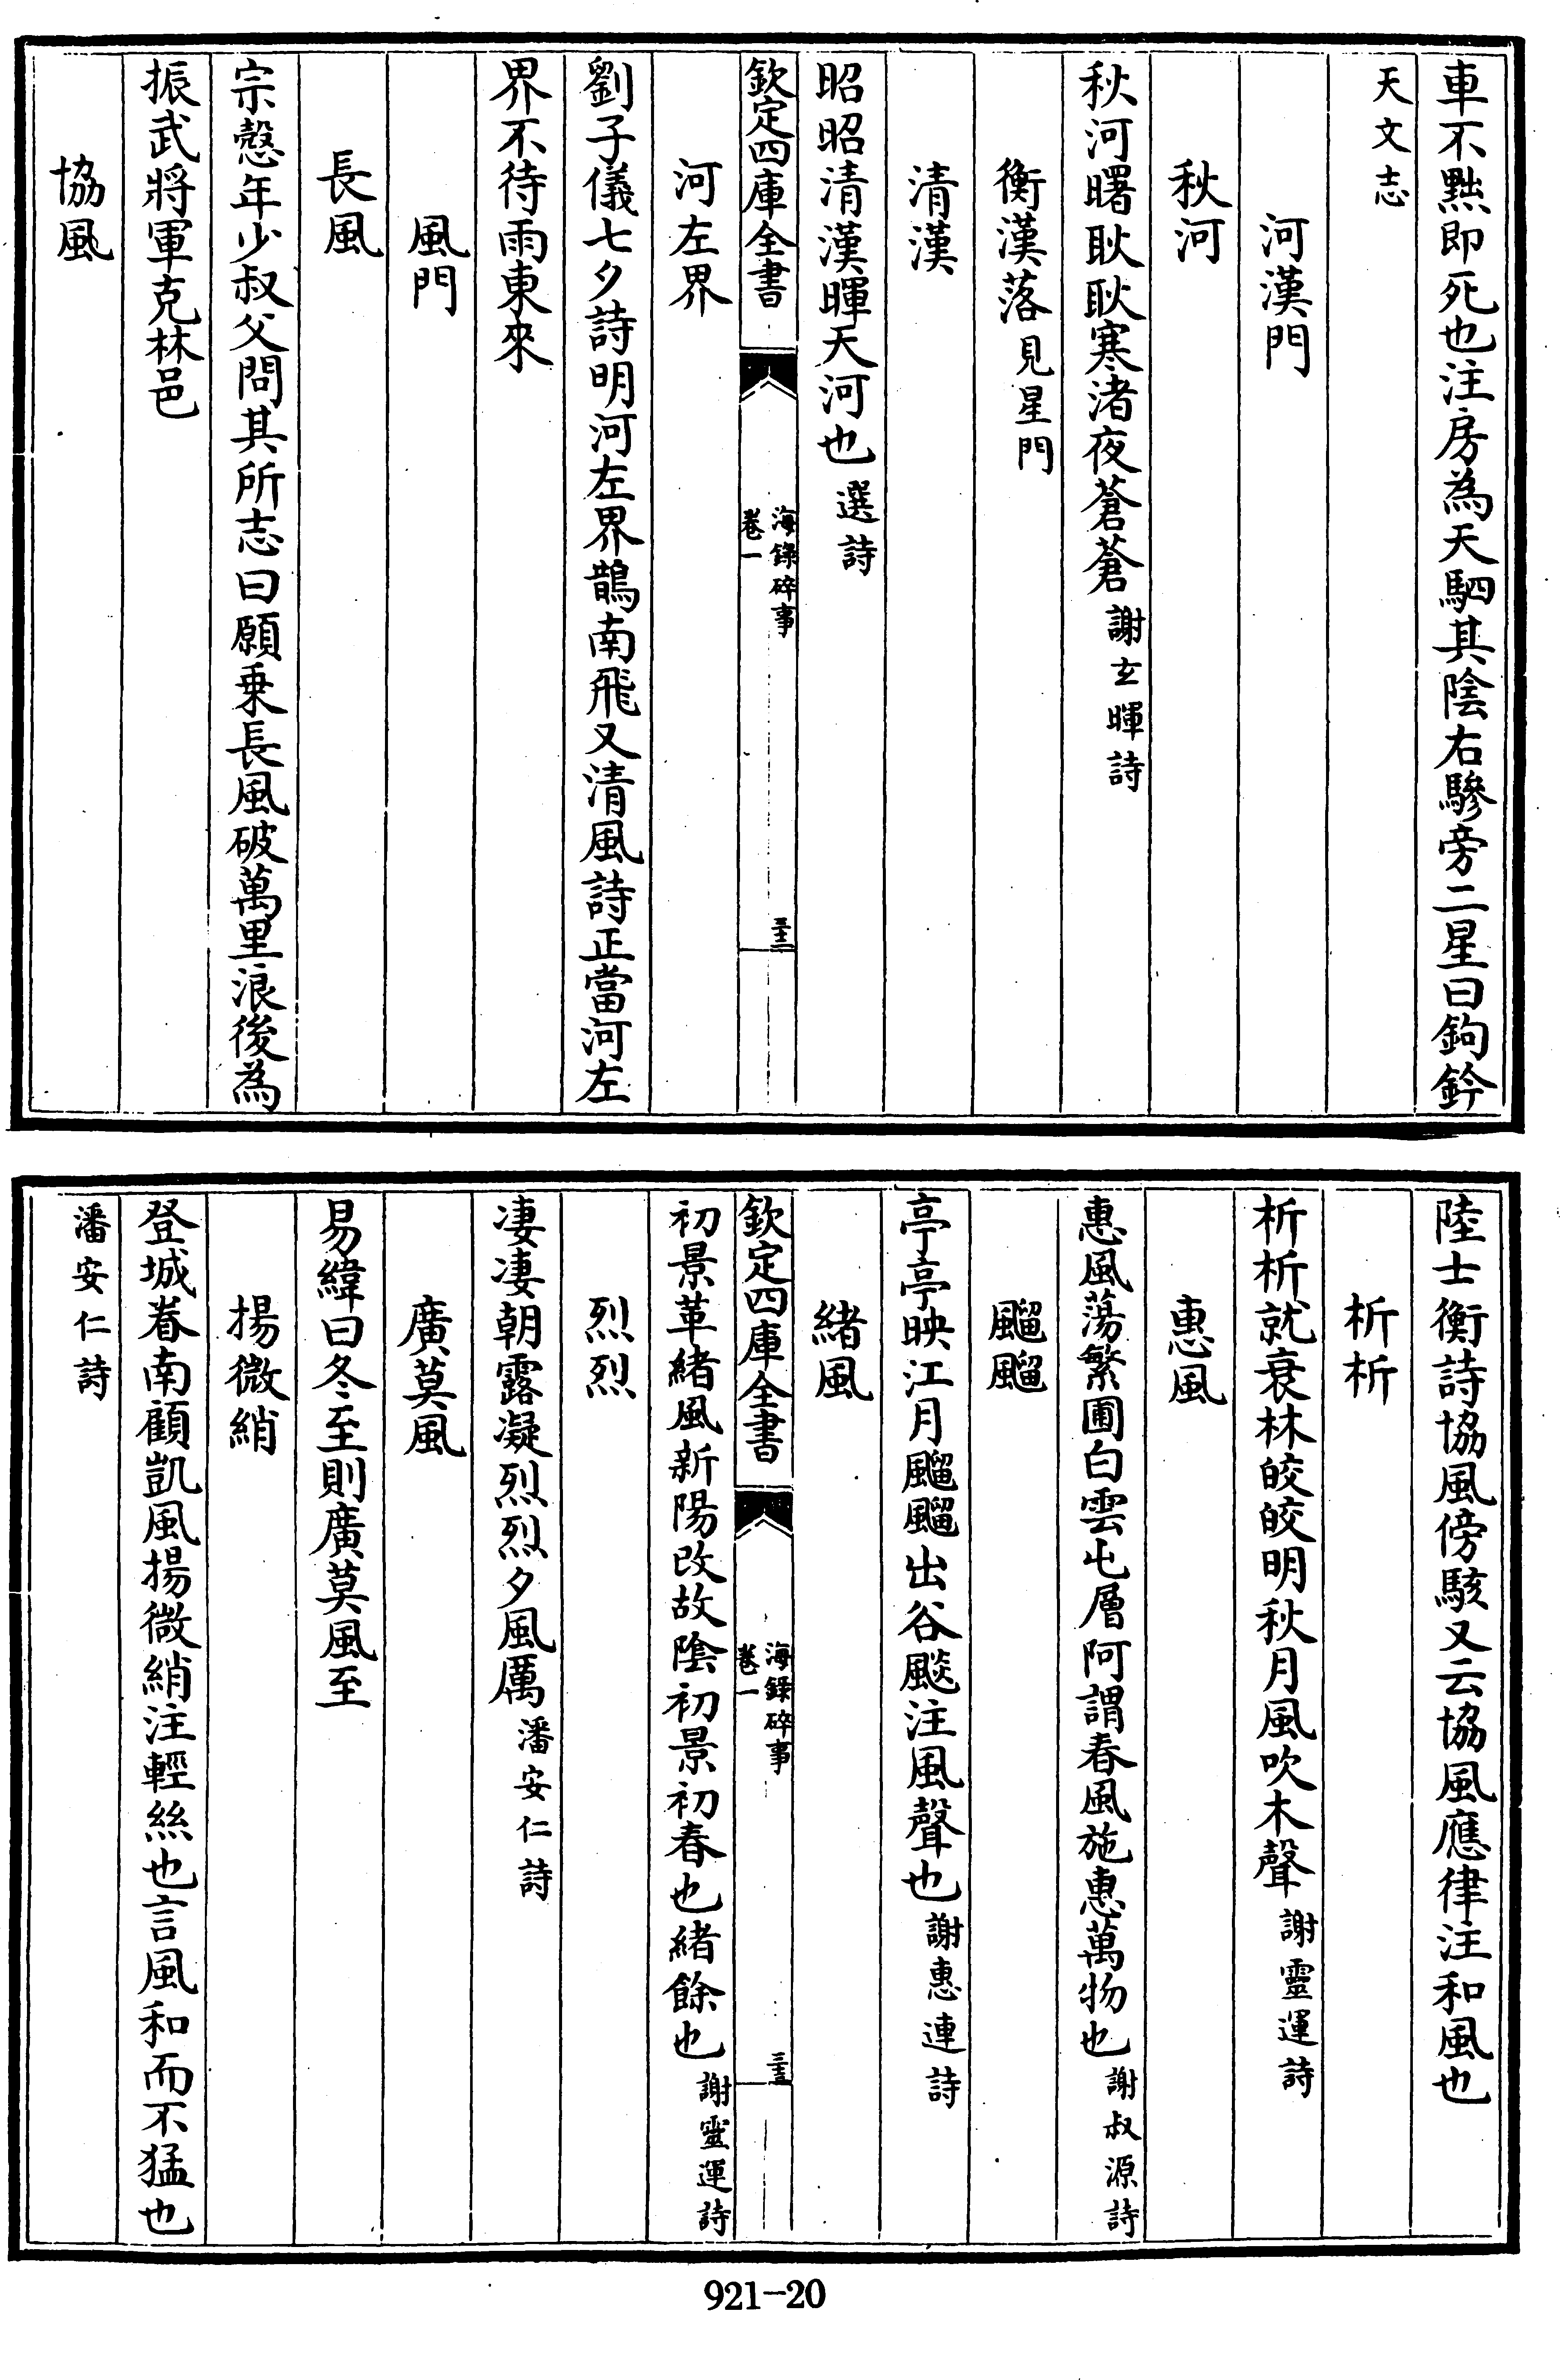 車不㸃即死也注房為天駟其陰右驂旁二星曰鉤鈐
天文志
河漢門
秋河
秋河曙耿耿寒渚夜蒼蒼謝玄暉詩
衡漢落見星門
清漢
昭昭清漢暉天河也選詩
欽定四庫全書
海錄碎事
卷一
三十二
河左界
劉子儀七夕詩明河左界鵲南飛又清風詩正當河左
界不待雨東來
風門
長風
宗慤年少叔父問其所志曰願乗長風破萬里浪後為
振武將軍克林邑
協風
陸士衡詩協風傍駭又云協風應律注和風也
析析
析析就衰林皎皎明秋月風吹木聲謝靈運詩
惠風
惠風蕩繁圃白雲屯層阿謂春風施惠萬物也謝叔源詩
飀飀
亭亭映江月飀飀出谷飈注風聲也謝惠連詩
緒風
欽定四庫全書
海錄碎事
卷一
三十三
初景革緒風新陽改故陰初景初春也緒餘也謝靈運詩
烈烈
凄凄朝露凝烈烈夕風厲潘安仁詩
廣莫風
易緯曰冬至則廣莫風至
揚微綃
登城眷南顧凱風揚微綃注輕絲也言風和而不猛也
潘安仁詩
921-20